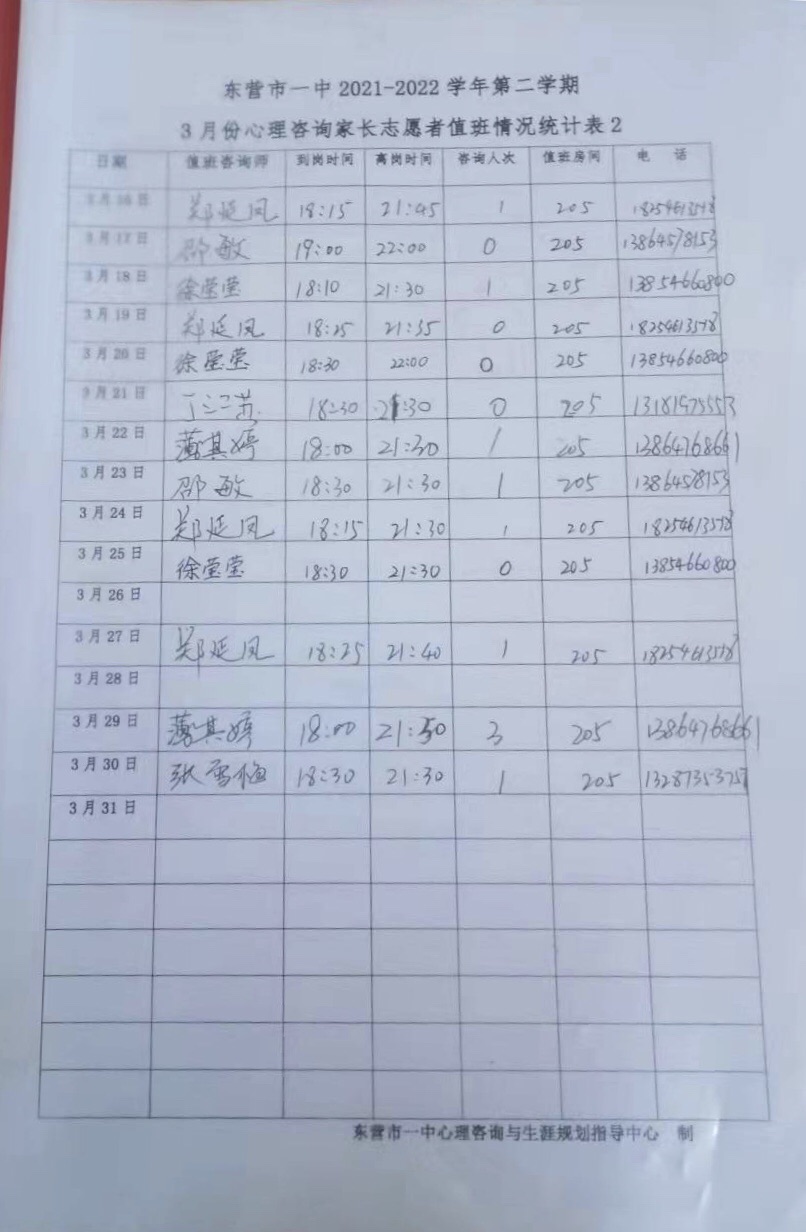 东营市一中 2021-2022 学年第二学期
3 月份心理咨询家长志愿者值班情况统计表 2
日期 值班咨询师 到岗时间 离岗时间 咨询人次 值班房间 电 话
3 月 16 日 郑延凤 18:15 21:45 1 205
3 月 17 日 邵敏 19:00 22:00 0 205 13864578153
3 月 18 日 徐莹莹 18:10 21:30 1 205 13854660800
3 月 19 日 郑延凤 18:25 21:35 0 205
3 月 20 日 徐莹莹 18:30 22:00 0 205 13854660800
3 月 21 日 18:30 21:30 0 205
3 月 22 日 薄其婷 18:00 21:30 1 205 13864768661
3 月 23 日 邵敏 18:30 21:30 1 205 13864578153
3 月 24 日 郑延凤 18:15 21:30 1 205
3 月 25 日 徐莹莹 18:30 21:30 0 205 13854660800
3 月 26 日
3 月 27 日 郑延凤 18:25 21:40 1 205
3 月 28 日
3 月 29 日 薄其婷 18:00 21:50 3 205 13864768661
3 月 30 日 张雪梅 18:30 21:30 1 205 13287353757
3 月 31 日
东营市一中心理咨询与生涯规划指导中心 制